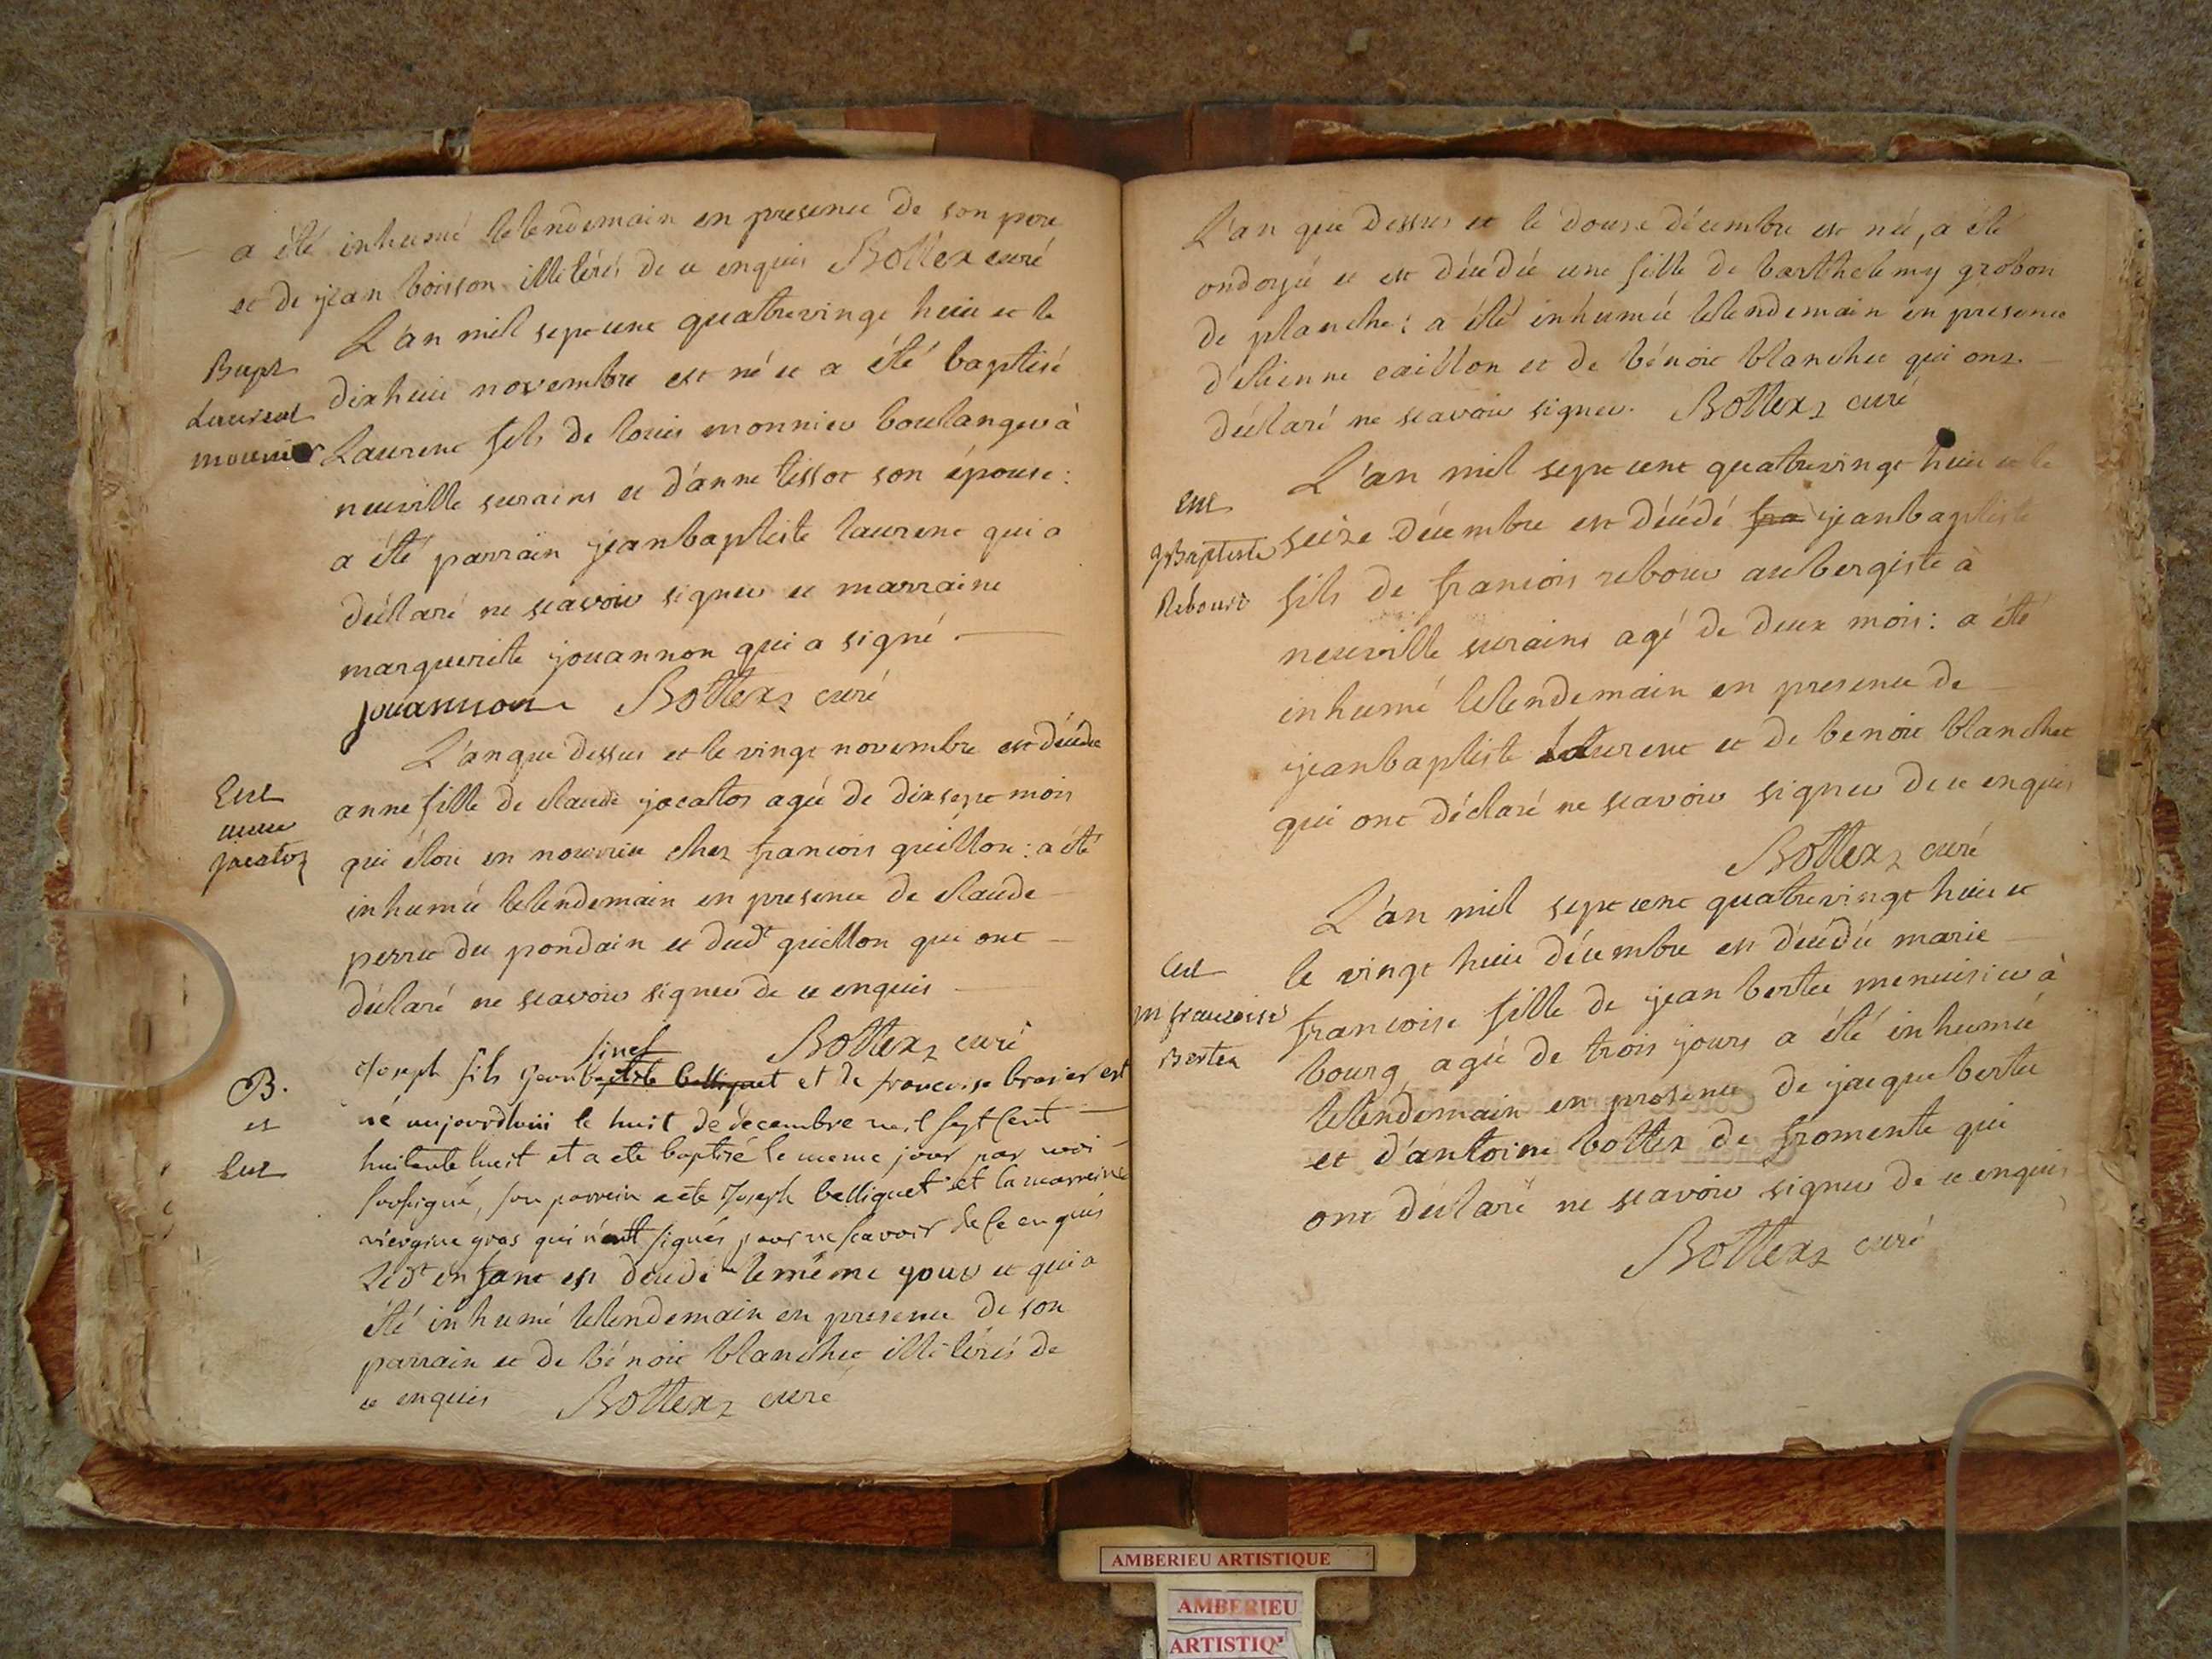 a été inhumé le lendemain en presence de son pere
et de jean boisson illitérés de ce enquis Bottex curé
Bapt
Laurent
monnier
L'an mil sept cent quatrevingt huit et le
dixhuit novembre est né et a été baptisé
Laurent fils de louis monnier boulanger à
neuville surains et d'anne tissot son épouse:
a été parrain jeanbaptiste laurent qui a
déclaré ne scavoir signer et marraine
marguerite jouannon qui a signé.
jouannon Bottex curé
Ent
anne
jacatos
L'an que dessus et le vingt novembre est décédée
anne fille de claude jacatos agée de dix sept mois
qui étoit en nourrice chez francois guillon: a été
inhumée le lendemain en presence de claude
perret du pondain et dudt guillon qui ont
déclaré ne scavoir signer de ce enquis
Bottex curé
B.
et
Ent
Joseph fils jeanbaptiste belliquet et de francoise brasier est
né aujourdhuii le huit de decembre mil sept cent
huitante huit et a ete baptisé le meme jour par moi
soussigné, son parrein a ete Joseph belliquet et la marreine
viergine gras qui n'ont signés pour ne scavoir de ce enquis
Ledt enfant est décédé le même jour et qui a
été inhumé le lendemain en presence de son
parrain et de bénoit blanchet illitérés de
ce enquis Bottex curé
L'an que dessus et le douze décembre est née, a été
ondoyée et est décédée une fille de barthelemy grobon
de planche: a été inhumée le lendemain en presence
d'étienne caillon et de bénoit blanchet qui ont
déclaré ne scavoir signer. Bottex curé
Ent
jBaptiste
Rebours
L'an mil sept cent quatrevingt huit et le
seize décembre est décédé fra jeanbaptiste
fils de francois rebour aubergiste à
neuville surains agé de deux mois: a été
inhumé le lendemain en presence de
jeanbaptiste laurent et de benoit blanchet
qui ont déclaré ne scavoir signer de ce enquis
Bottex curé
Ent
m francoise
Bertet
L'an mil sept cent quatrevingt huit et
le vingt huit décembre est décédée marie
francoise fille de jean bertet menuisier à
bourg, agée de trois jours a été inhumée
le lendemain en presence de jacque bertet
et d'antoine bottex de fromente qui
ont déclaré ne scavoir signer de ce enquis
Bottex curé
AMBERIEU ARTISTIQUE
AMBERIEU
ARTISTIQ